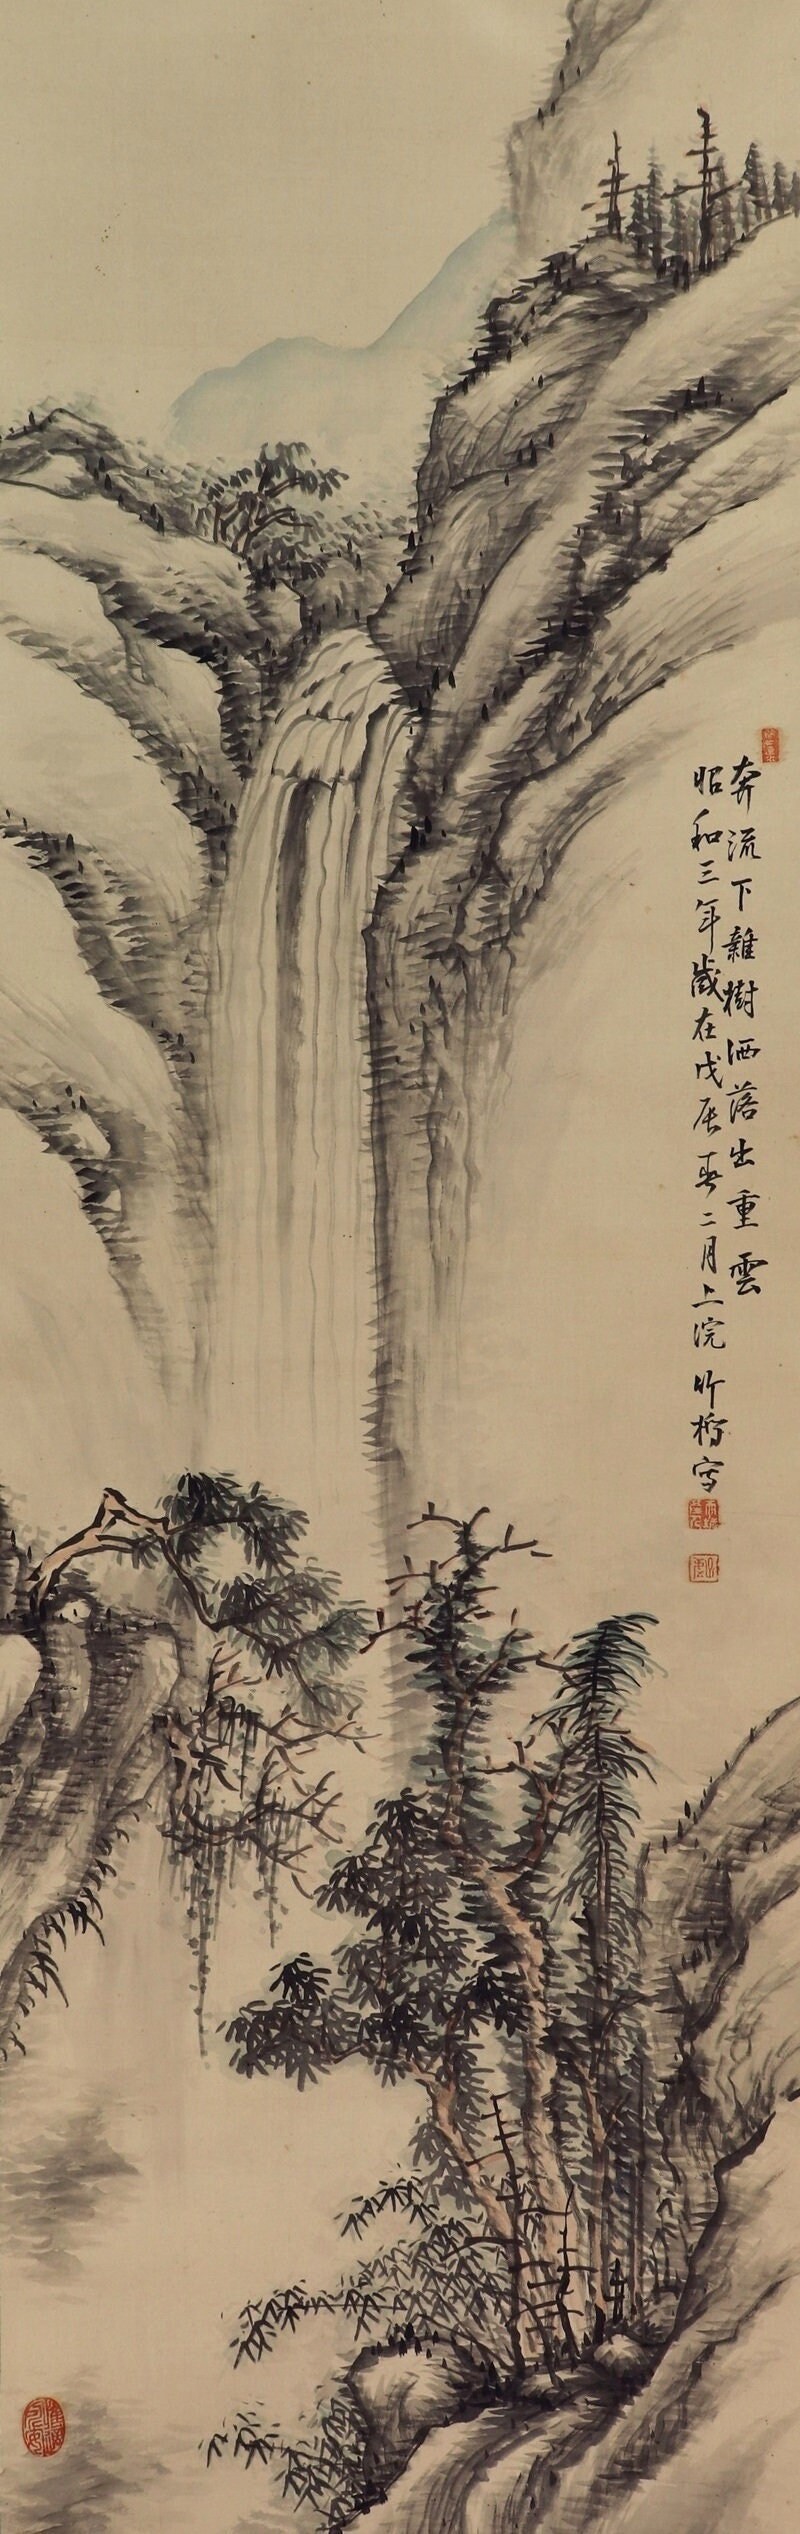 奔流下雜樹洒落出重雲
昭和三年歲在戊辰春二月上浣 竹橋寫